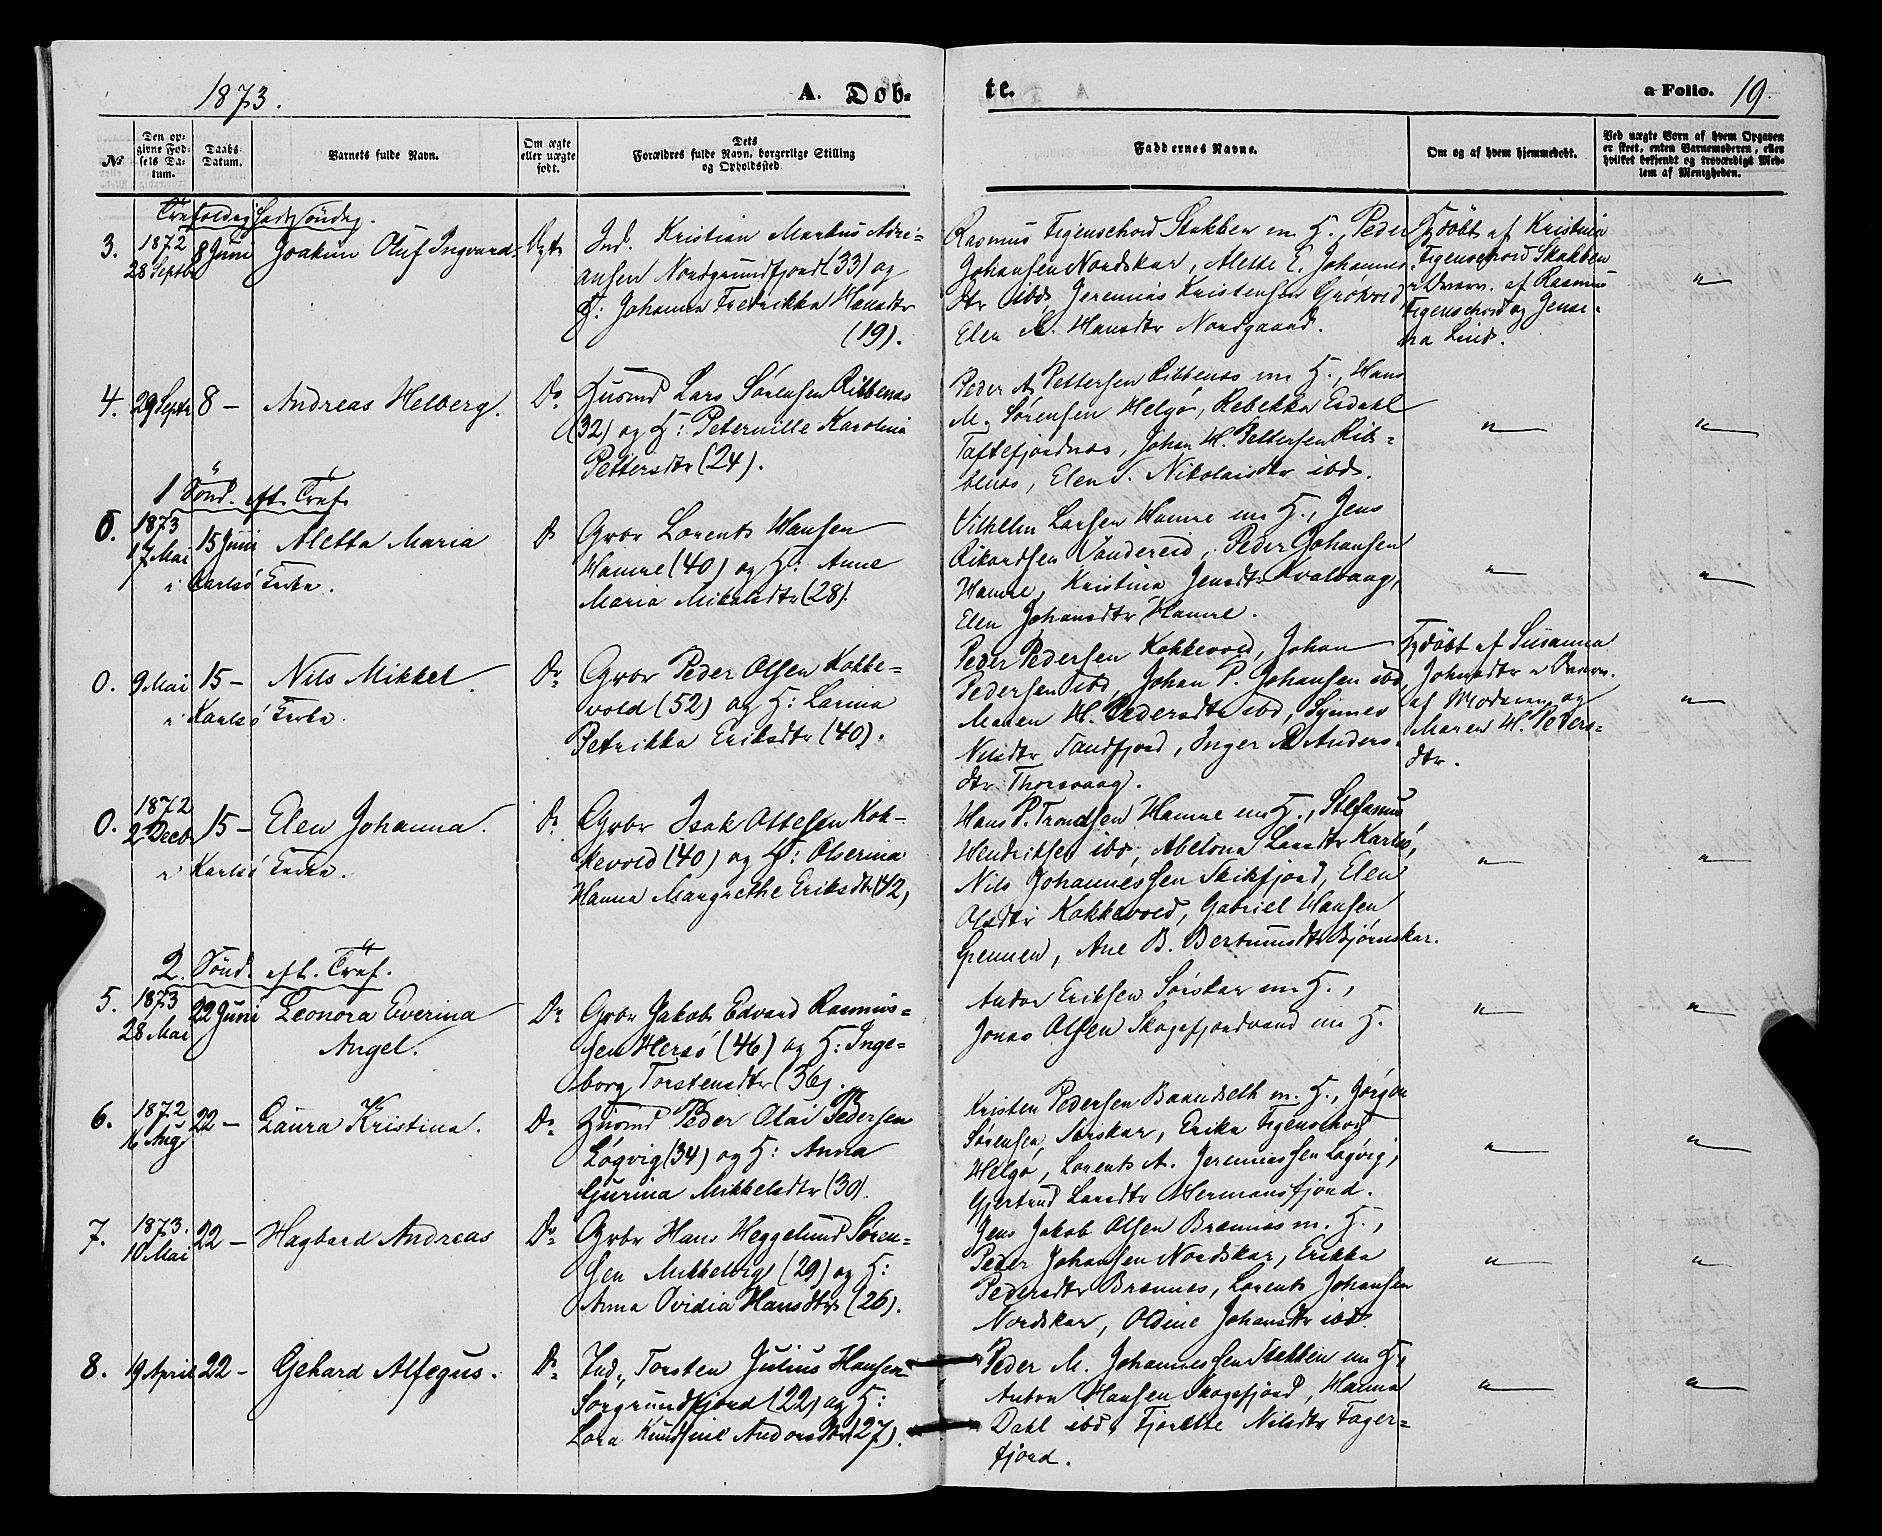 1873.
A. Døb-
te.
a Folio. 19.
No
Den opgivne Fødsels Datum.
Daabs-Datum.
Barnets fulde Navn.
Om ægte eller uægte født.
Dets Forældres fulde Navn, borgerlige Stilling og Opholdssted.
Faddernes Navne.
Om og af hvem hjemmedøbt.
Ved uægte Børn af hvem Opgaven er skeet, enten Barnemoderen, eller hvilket bekjendt og troværdigt Medlem af Menigheden.
3.
1872
28 Septbr
8 Juni
Joakim Oluf Ingvard
Ægte
Ind. Kristian Markus Adri-
ansen Nordgrundfjord (33) og
H: Johanna Fredrikka Hansdtr
(19).
Rasmus Figenschord Stakken m H., Peder
Johansen Nordskar, Alette E. Johannes-
dtr ibd, Jeremias Kristensen Grøtvold
Elen M. Hansdtr Nordgaard.
Hjdøbt af Kristina
Figenschord Stakken
i Overv. af Rasmus
Figenschord og Jensi-
na Lind.
"
4.
29 Septr
8 —
Andreas Helberg.
Do
Husmd Lars Sørensen Ribbenæs
(32) og H: Peternille Karolina
Pettersdtr (24).
Peder A. Pettersen Ribbenæs m H., Hans
M. Sørensen Helgø, Rebekka Esdahl
Toftefjordnæs, Johan H. Pettersen Rib-
benæs, Elen S. Nikolaisdtr ibd.
"
"
1 Sønd. eft. Tref.
0.
1873
17 Mai
15 Juni
i Karlsø Kirke.
Aletta Maria
D
Grbr Lorents Hansen
Hamre (40) og H: Anne
Maria Mikalsdtr (28).
Vilhelm Larsen Hamre m H., Jens
Rikardsen Vandereid, Peder Johansen
Hamre, Kristina Jensdtr Kvalvaag,
Elen Johansdtr Hamre.
"
"
0.
9 Mai
15 —
i Karlsø Kirke.
Nils Mikkel
Do
Grbr Peder Olsen Kokke-
vold (52) og H: Larina
Petrikka Eriksdtr (40).
Peder Pedersen Kokkevold, Johan
Pedersen ibd, Johan P. Johansen ibd,
Maren H. Pedersdtr ibd, Synnev
Nilsdtr Sandfjord, Inger M Anders-
dtr Thorsvaag.
Hjdøbt af Susanna
Johnsdtr i Overv.
af Moderen og
Maren H. Peders-
dtr.
"
0.
1872
2 Decbr
15 —
i Karlsø Kirke.
Elen Johanna.
Do
Grbr Isak Ottesen Kok-
kevold (40) og H: Olserina
Hanna Margrethe Eriksdtr (42,
Hans P. Trondsen Hamre m H., Stefanus
Hendriksen ibd, Abelona Larsdtr Karlsø,
Nils Johannessen Skibfjord, Elen
Olsdtr Kokkevold, Gabriel Hansen
Grennen, Ane B. Bertunsdtr Bjørnskar.
"
"
2. Sønd. eft. Tref.
5.
1873
28 Mai
22 Juni
Leonora Everina
Angel.
Do
Grbr Jakob Edvard Rasmus-
sen Hersø (46) og H: Inge-
borg Torstensdtr (36).
Andor Eriksen Sørskar m H.,
Jonas Olsen Skogsfjordvand m H.
"
"
6.
1872
16 Aug
22 —
Laura Kristina.
Do
Husmd Peder Olai Pedersen
Løgvig (34) og H: Anna
Gurina Mikkelsdtr (30).
Kristen Pedersen Baandseth m. H., Jørgen
Sørensen Sørskar, Erika Figenschord
Helgø, Lorents A. Jeremiassen Løgvig,
Gjertrud Larsdtr Hermansfjord.
"
"
7.
1873.
10 Mai
22 —
Hagbard Andreas
Do
Grbr Hans Heggelund Søren-
sen Mikkelvig (29) og H:
Anna Ovidia Hansdtr (26).
Jens Jakob Olsen Bramnes m. H.,
Peder Johansen Nordskar, Erikka
Pedersdtr Bramnes, Lorents Johansen
Nordskar, Oldine Johansdtr ibd.
"
"
8.
19 April
22 —
Gehard Alfegus.
Do
Ind. Torsten Julius Hansen
Sørgrundfjord (22) og H:
Lora Knudsine Andorsdtr (27).
Peder M. Johannessen Stakken m H.
Anton Hansen Skogsfjord, Hanna
Dahl ibd, Fjorette Nilsdtr Fager-
fjord.
"
"